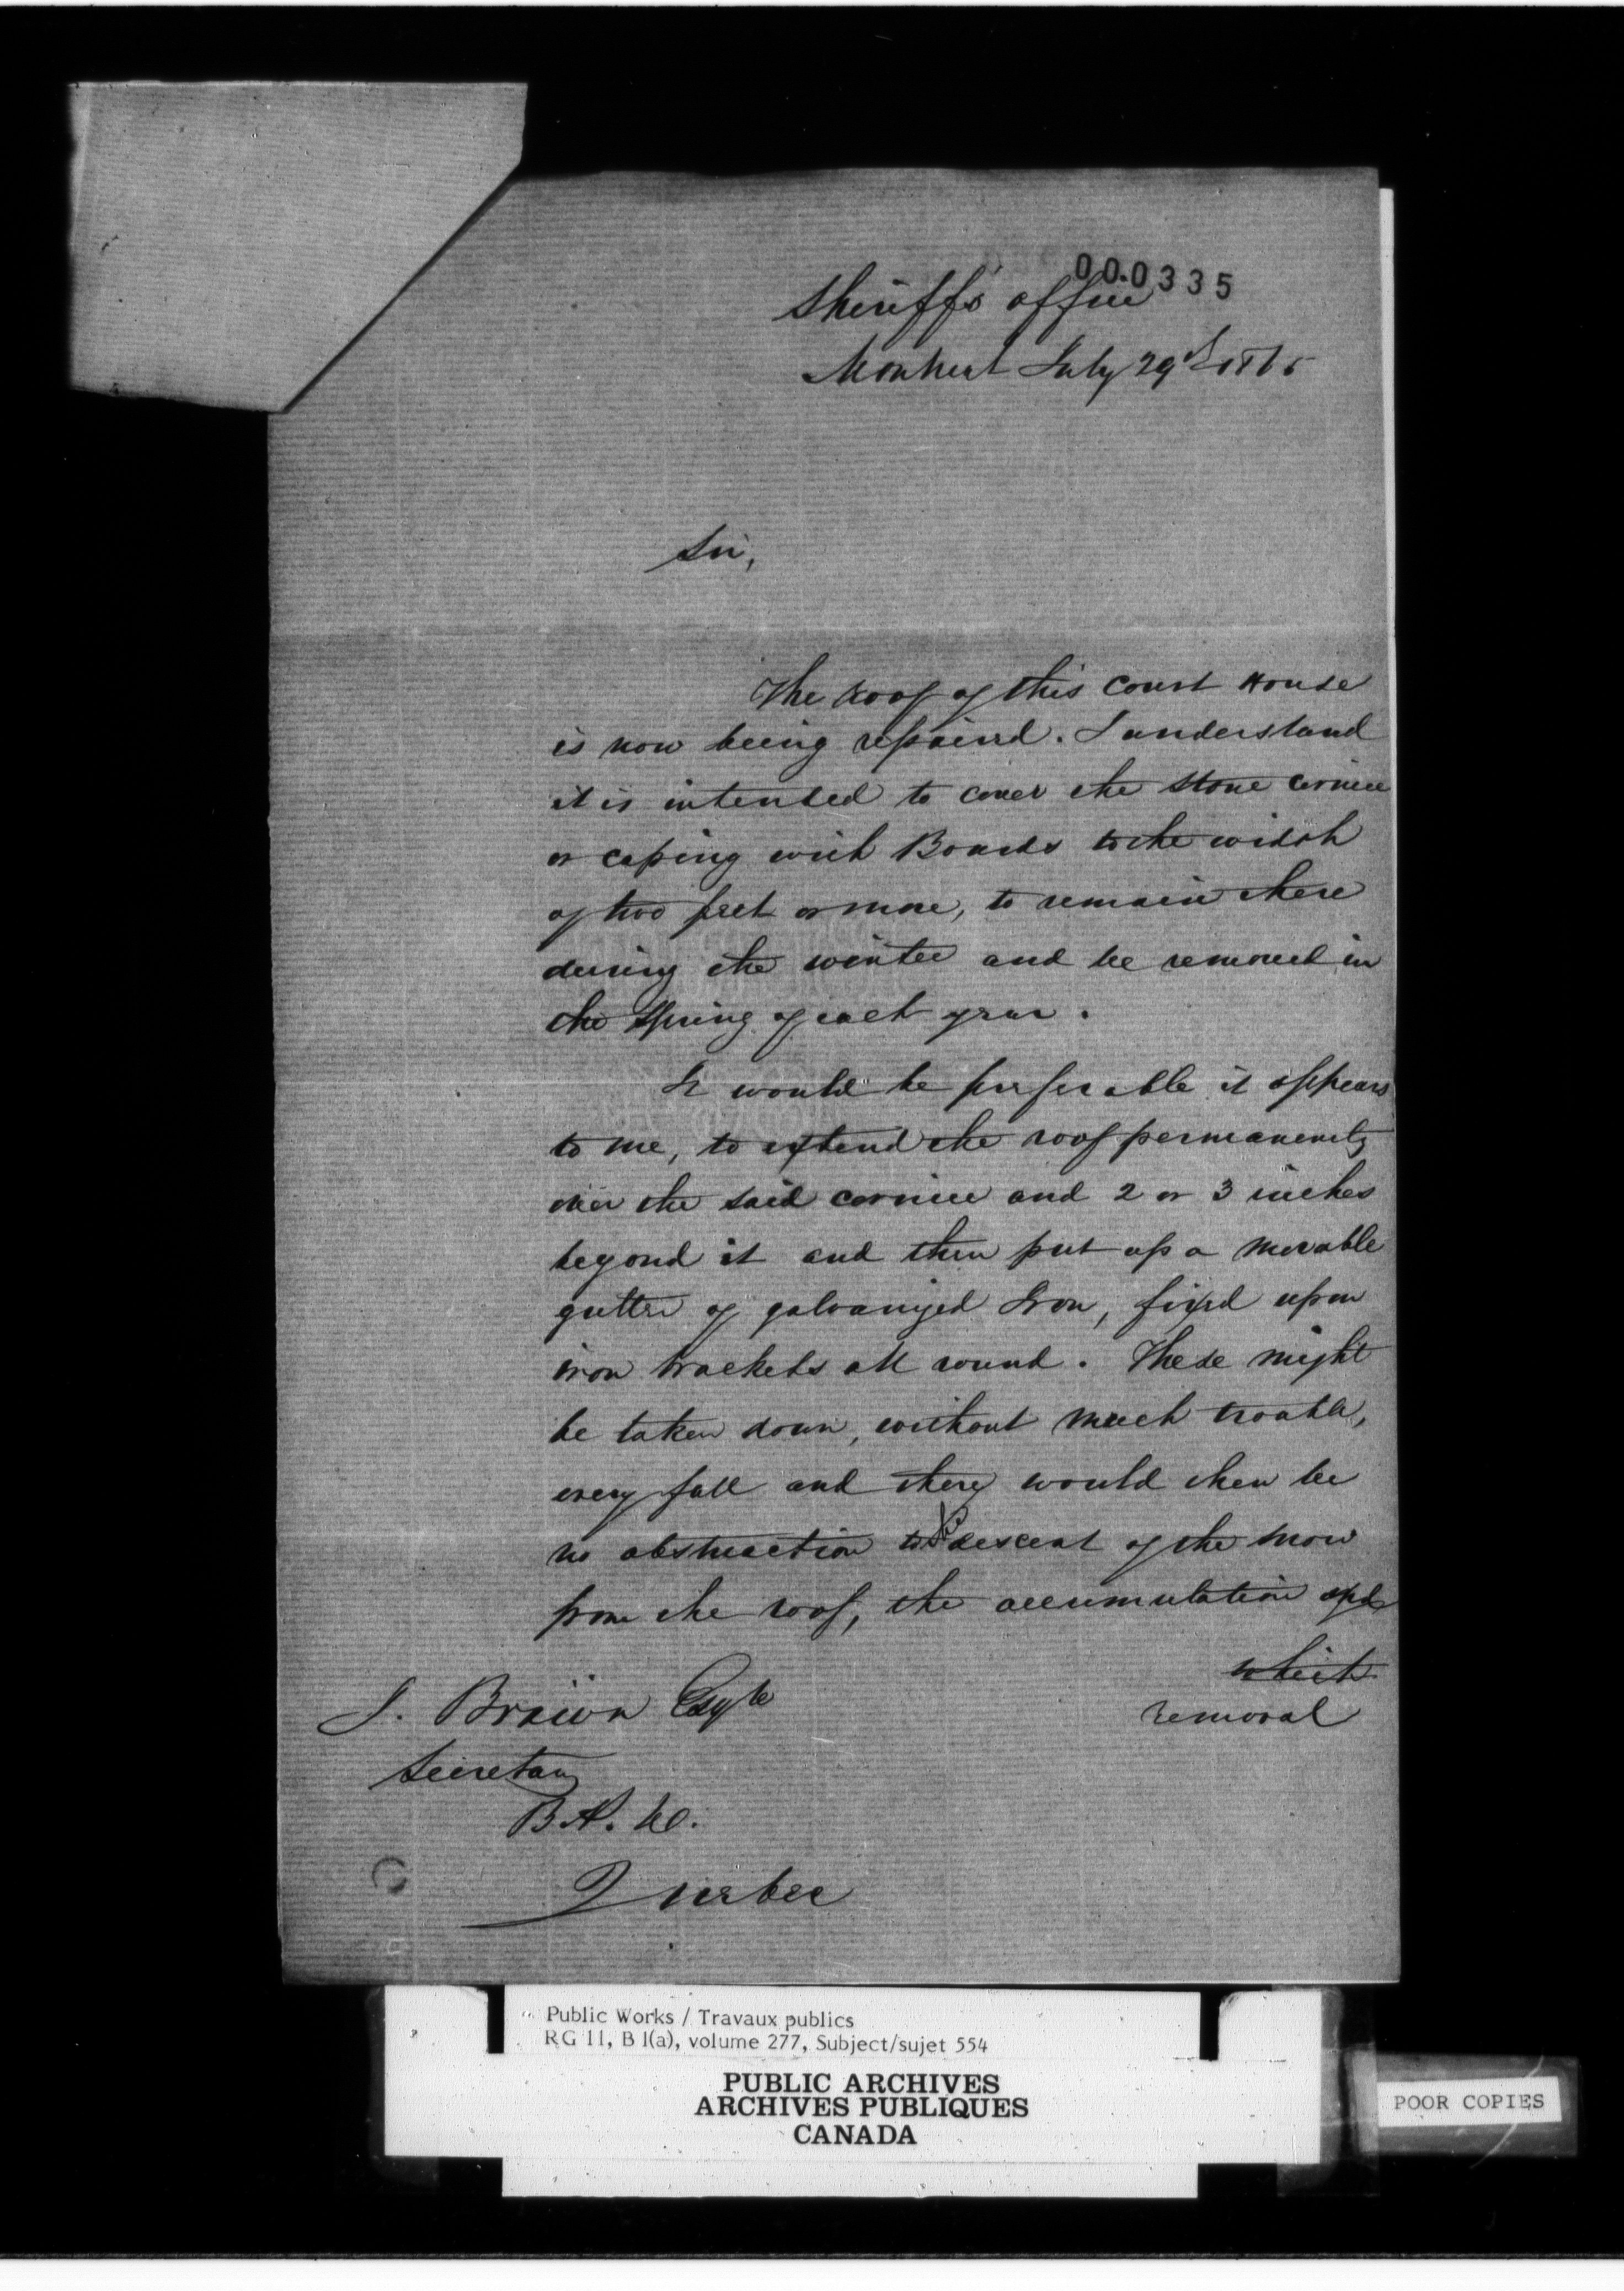 000335
Sheriff's office
Montreal July 29th 1865
Sir,
The Roof of this Court House
is now being repaired. I understand
it is intended to cover the stone cornice
or coping with Boards to the width
of two feet or more, to remain there
during the winter and be removed in
the Spring of each year.
It would be preferable it appears
to me, to extend the roof permanently
over the said cornice and 2 or 3 inches
beyond it and then put up a movable
gutter of galvanized Iron, fixed upon
iron brackets all round. These might
be taken down, without much trouble,
every fall and there would then be
no obstruction to the descent of the snow
from the roof, the accumulation and
which
removal
J. Braün Esqre
Secretary
B.P.W.
Quebec
Public Works / Travaux publics
RG 11, B 1(a), volume 277, Subject/sujet 554
PUBLIC ARCHIVES
ARCHIVES PUBLIQUES
CANADA
POOR COPIES